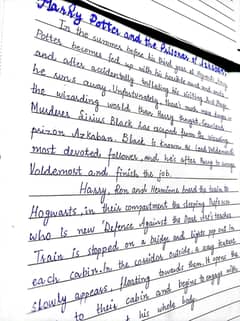 Harry Potter and the Prisoner of Azkaban
In the summer before his third year at Hogwarts, Harry
Potter becomes fed up with his horrible aunt and uncle
and after accidentally inflating his visiting Aunt Marge,
he runs away. Unfortunately, there's much more danger in
the wizarding world than Harry thought. Convicted
Murderer Sirius Black has escaped from the wizarding
prison Azkaban. Black is known as Lord Voldemort's
most devoted follower, and he's after Harry to avenge
Voldemort and finish the job.
Harry, Ron and Hermione board the train to
Hogwarts, in their compartment the sleeping Professor
who is new 'Defence Against the Dark Arts' teacher.
Train is stopped on a bridge and lights go out in
each cabin. In the corridor outside, a
slowly appears, floating towards them. It opens the
to their cabin and begins to engage with
his whole body.